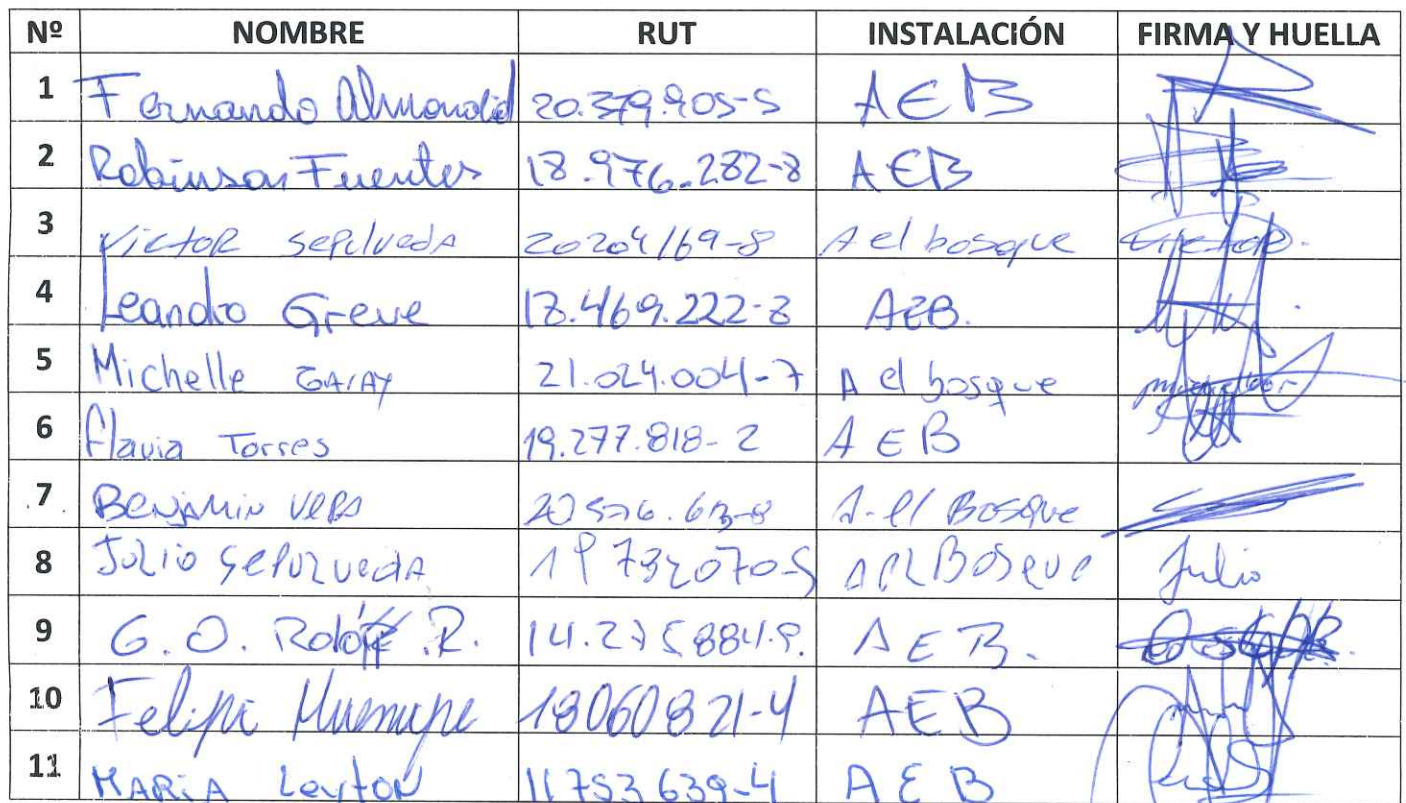 Nº NOMBRE RUT INSTALACIÓN FIRMA Y HUELLA
1 Fernando Almonacid 20.379.905-5 AEB
2 Robinson Fuentes 18.976.282-8 AEB
3 Victor sepulveda 20204169-8 A el bosque
4 Leandro Greve 18.469.222-8 AEB.
5 Michelle GARAY 21.024.004-7 A el bosque
6 flavia Torres 19.277.818-2 AEB
7 Benjamin Vera A-el Bosque
8 Julio Sepulveda 19732070-5 A el Bosque Julio
9 G. O. R. AEB.
10 Felipe 18060821-4 AEB
11 MARIA Leyton 11753639-4 AEB